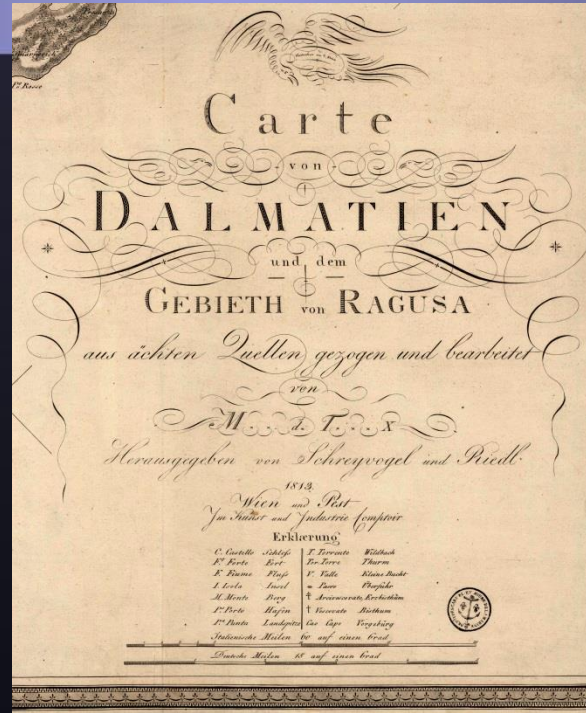 Carte
von
DALMATIEN
und dem
GEBIETH von RAGUSA
aus ächten Quellen gezogen und bearbeitet
von
M. . . d. T. . . x
Herausgegeben von Schreyvogel und Riedl.
1813.
Wien und Pest
Im Kunst und Industrie Comptoir
Erklærung
C. Castello Schloss T. Torrente Wildbach
Ft. Forte Fort Tor. Torre Thurm
F. Fiume Fluss V. Valle Kleine Bucht
I. Isola Insel Passo
M. Monte Berg Arcivescovato, Erzbisthum
Po. Porto Hafen Vescovato Bisthum
Pta. Punta Landspitz Cao Capo Vorgebürg
Italienische Meilen 60 auf einen Grad
Deutsche Meilen 15 auf einen Grad